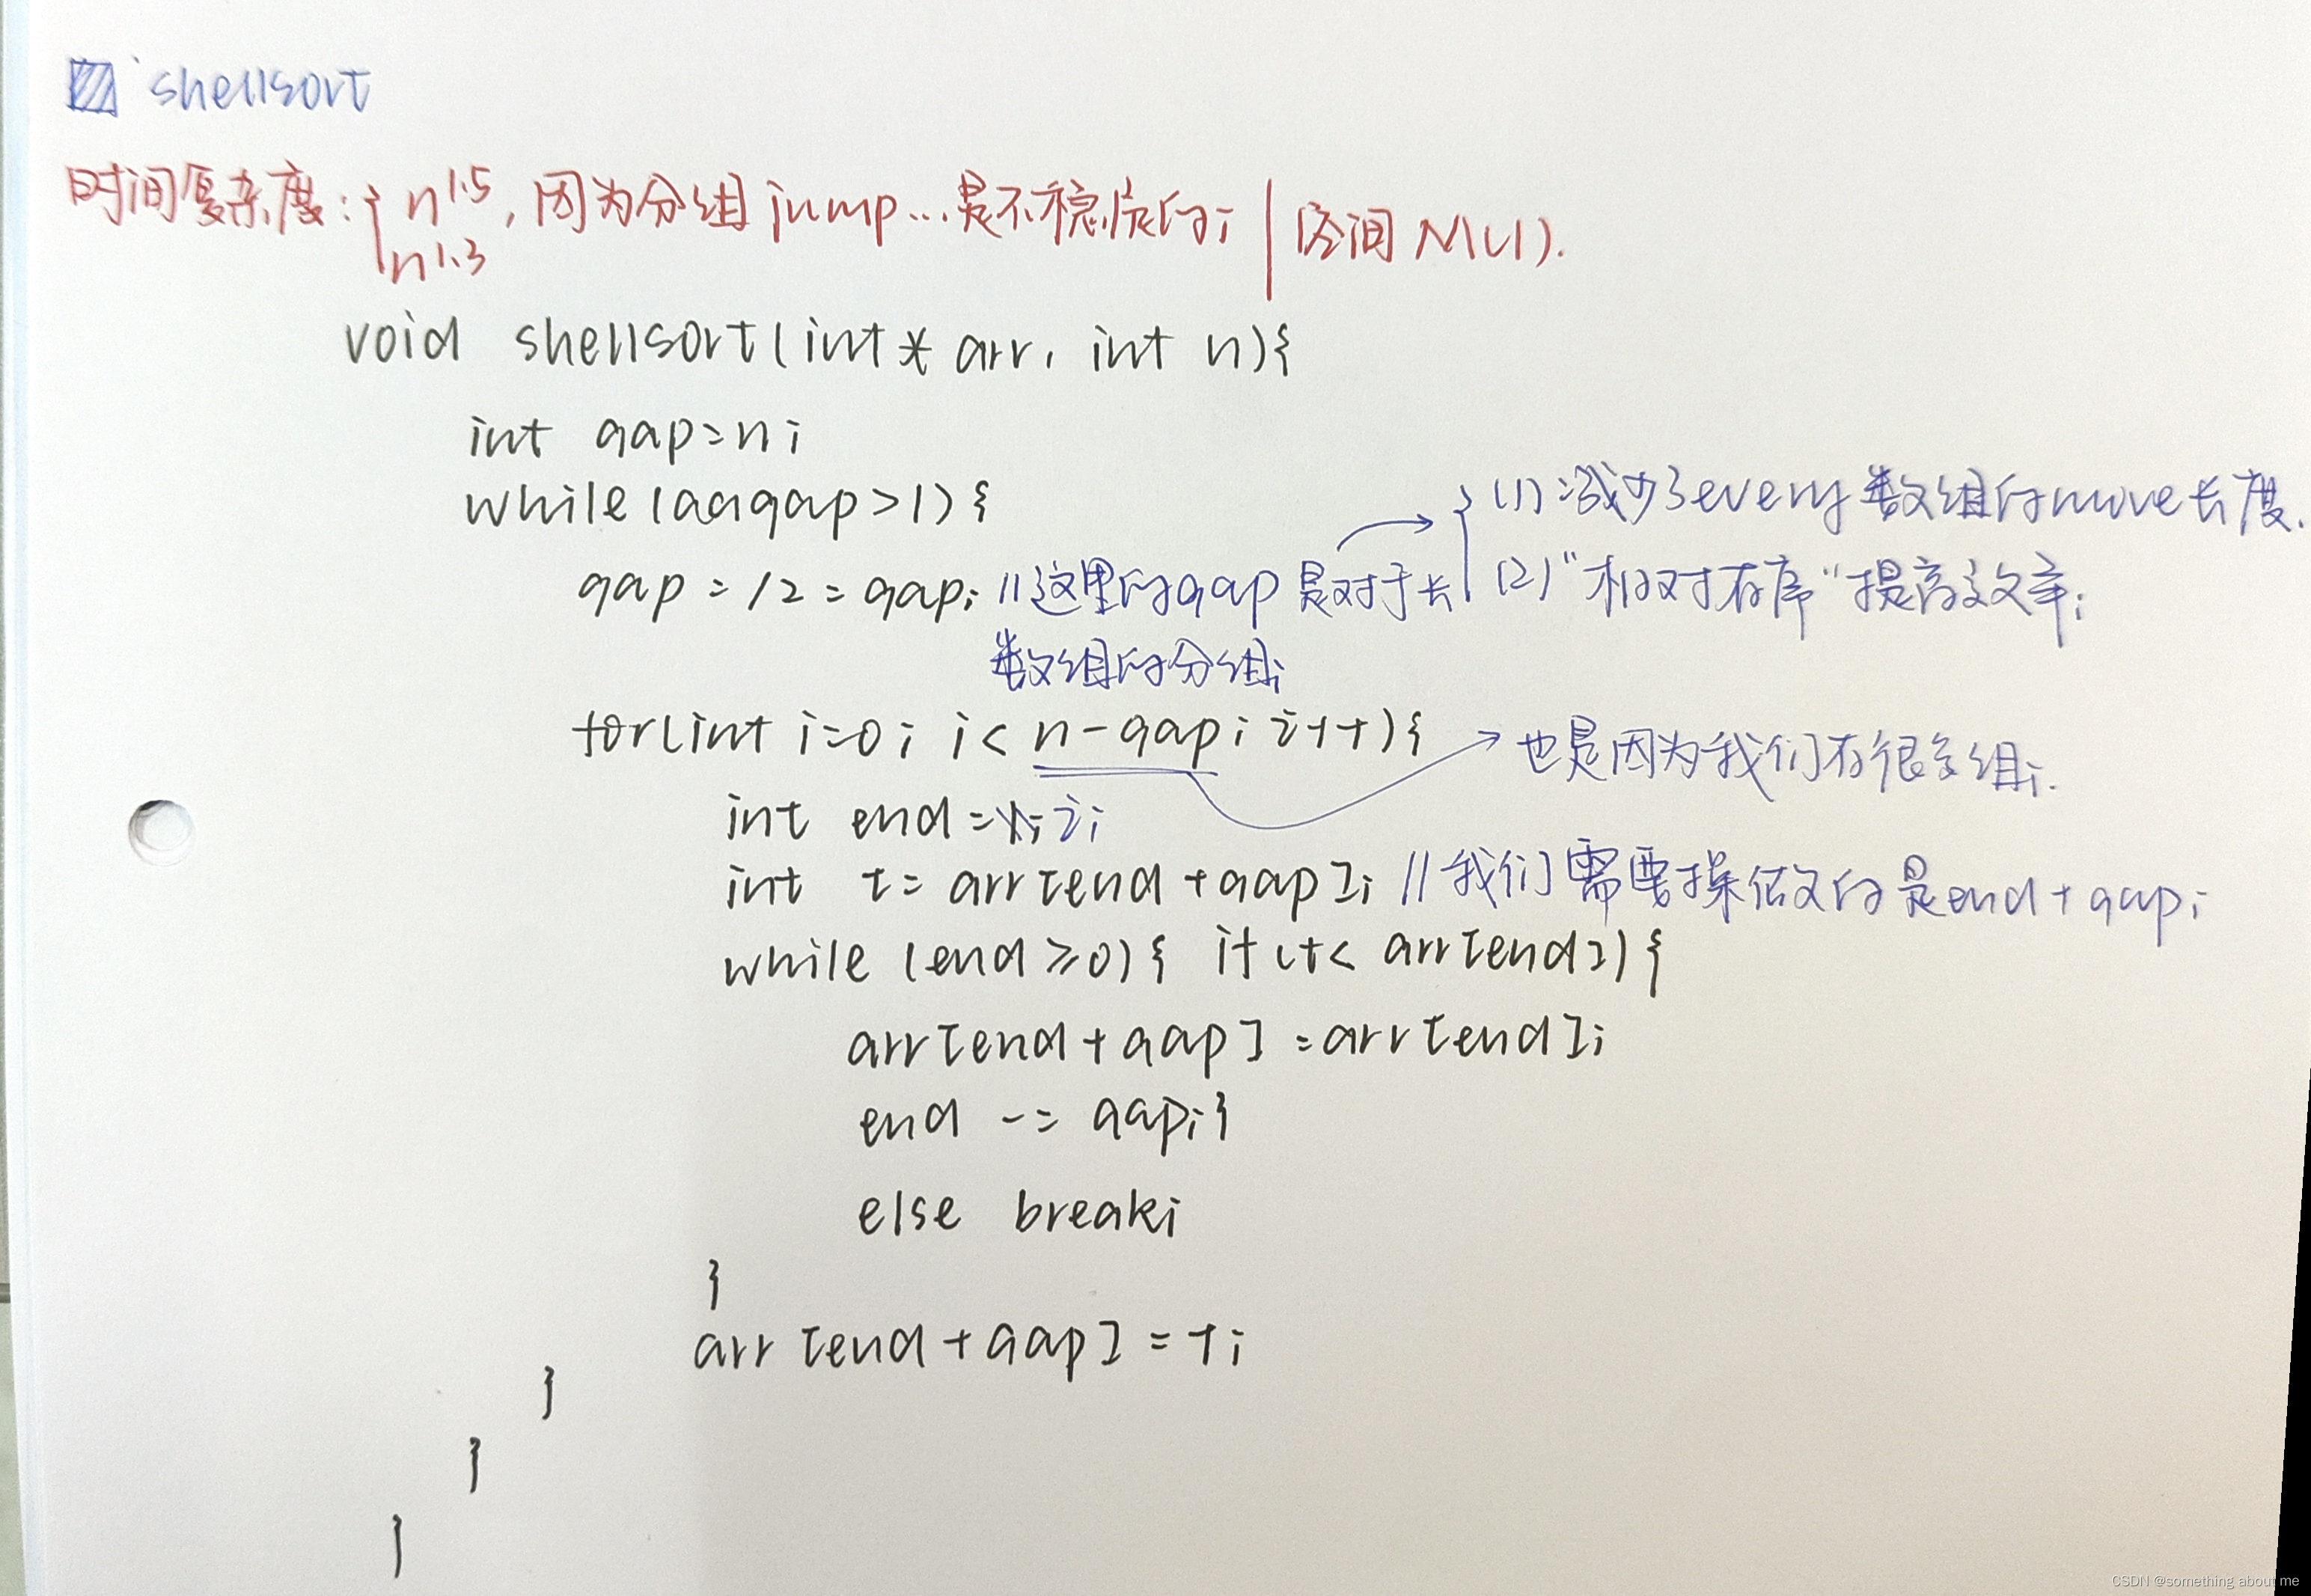 shellsort
时间复杂度: { n^1.5, 因为分组 jump...是不稳定的; | 空间 N(1).
n^1.3
void shellsort(int* arr, int n){
int gap=n;
while (gap>1){
(1):减少了every数组的move长度.
gap = /2 = gap; //这里的gap是对于长
(2)"相对有序"提高效率;
数组的分组;
for(int i=0; i< n-gap; i++){
也是因为我们有很多组;.
int end = i;
int t= arr[end +gap]; //我们需要操做的是end+gap;
while (end ≥0){ if (t< arr[end]){
arr[end+gap] =arr[end];
end -= gap;}
else break;
}
arr [end+gap] = t;
}
}
}
CSDN @something about me